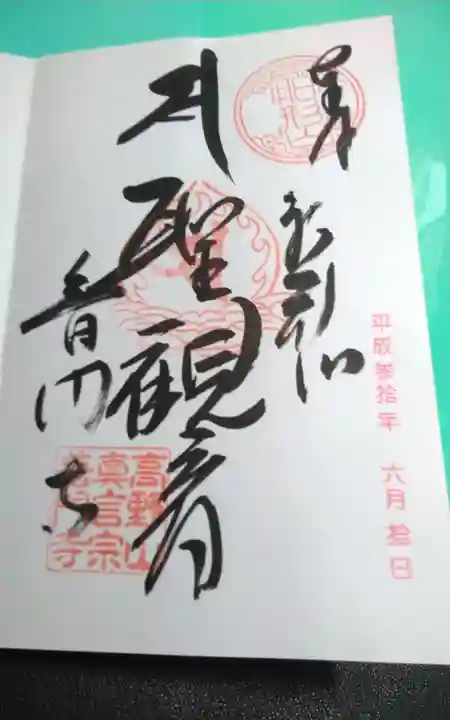 奉
平成参拾年 六月拾日
聖観音
普門寺
高野山
真言宗
普門寺